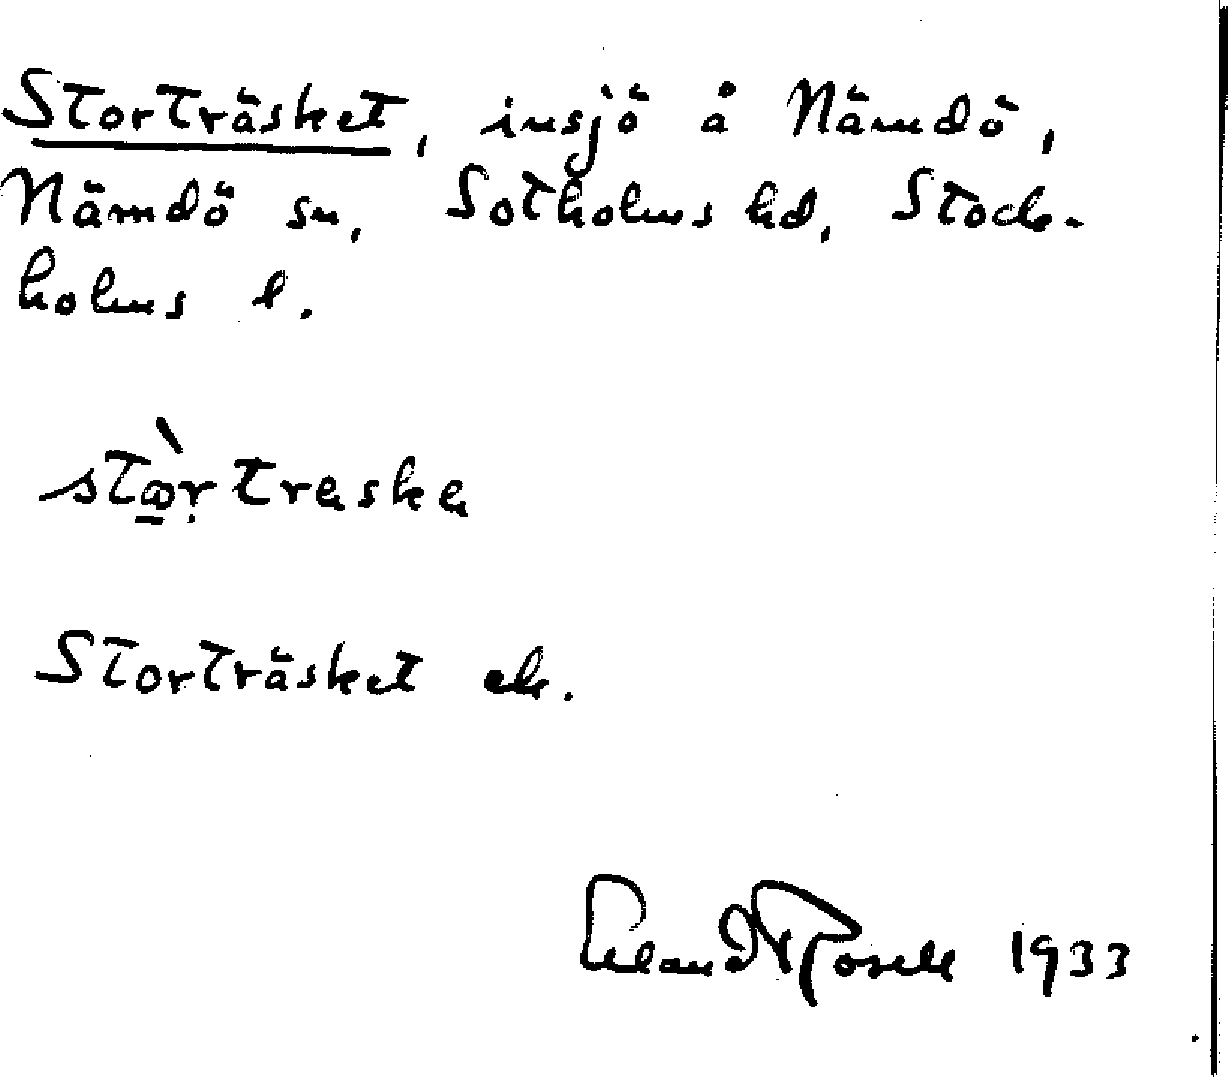 Storträsket, insjö å Nämdö,
Nämdö sn, Sotholms hd, Stock-
holms l.
stòrtreske
Storträsket ek.
Erland Rosell 1933